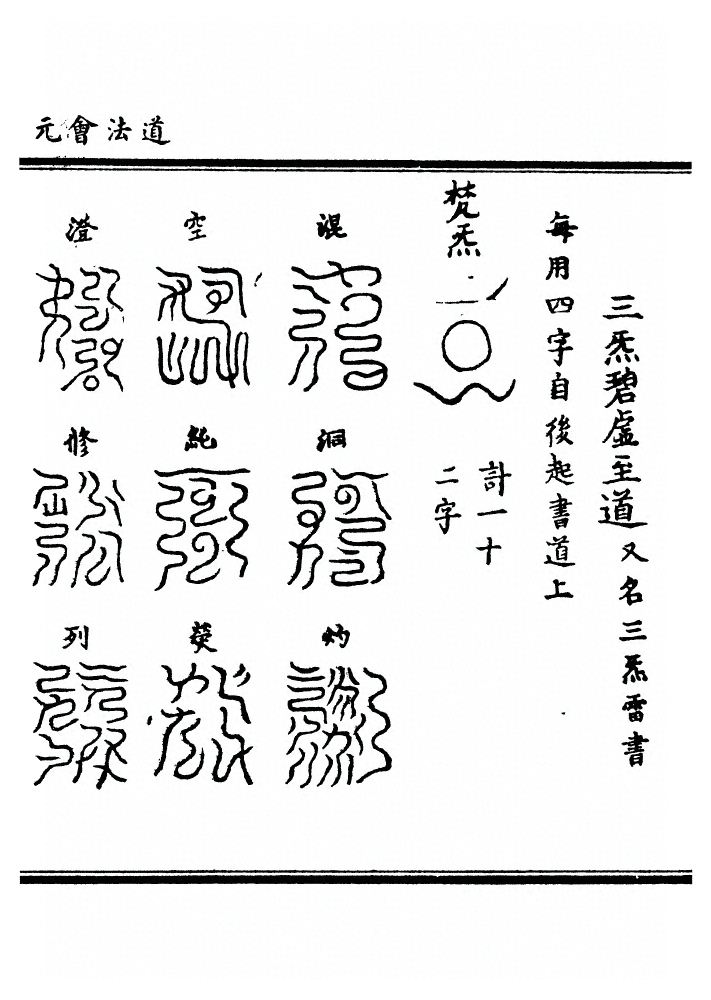 道法會元
三炁碧虛至道又名三炁雷書
每用四字自後起書道上
梵炁
計一十
二字
混
洞
灼
空
純
熒
澄
修
列